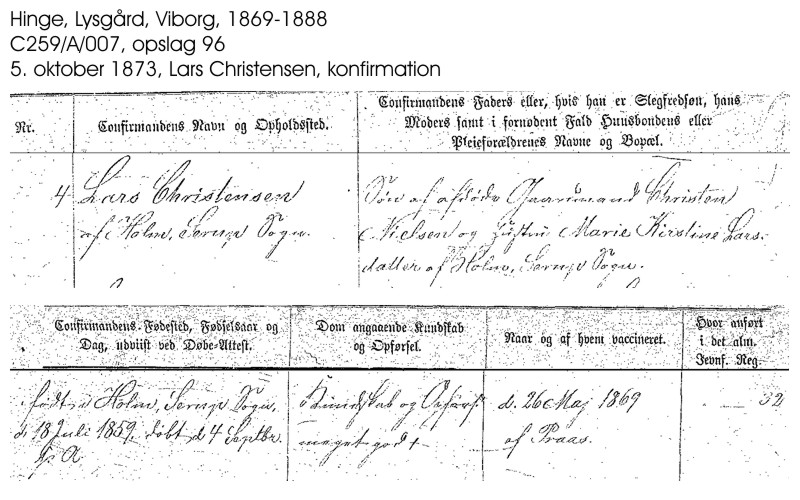 Hinge, Lysgård, Viborg, 1869-1888
C259/A/007, opslag 96
5. oktober 1873, Lars Christensen, konfirmation
Nr.
Confirmandens Navn og Opholdssted.
Confirmandens Faders eller, hvis han er Slegfredsøn, hans
Moders samt i fornødent Fald Huusbondens eller
Pleieforældrenes Navne og Bopæl.
4
Lars Christensen
af Holm, Serup Sogn.
Søn af afdøde Gaardmand Christen
Nielsen og Hustru Marie Kirstine Lars-
datter af Holm, Serup Sogn.
Confirmandens Fødested, Fødselsaar og
Dag, udviist ved Døbe-Attest.
Dom angaaende Kundskab
og Opførsel.
Naar og af hvem vaccineret.
Hvor anført
i det alm.
Jevnf. Reg.
født i Holm, Serup Sogn,
d. 18 Juli 1859, døbt d 4 Septbr.
Kundskab og Opførsel
meget godt
d. 26 Maj 1869
af Praas.
32